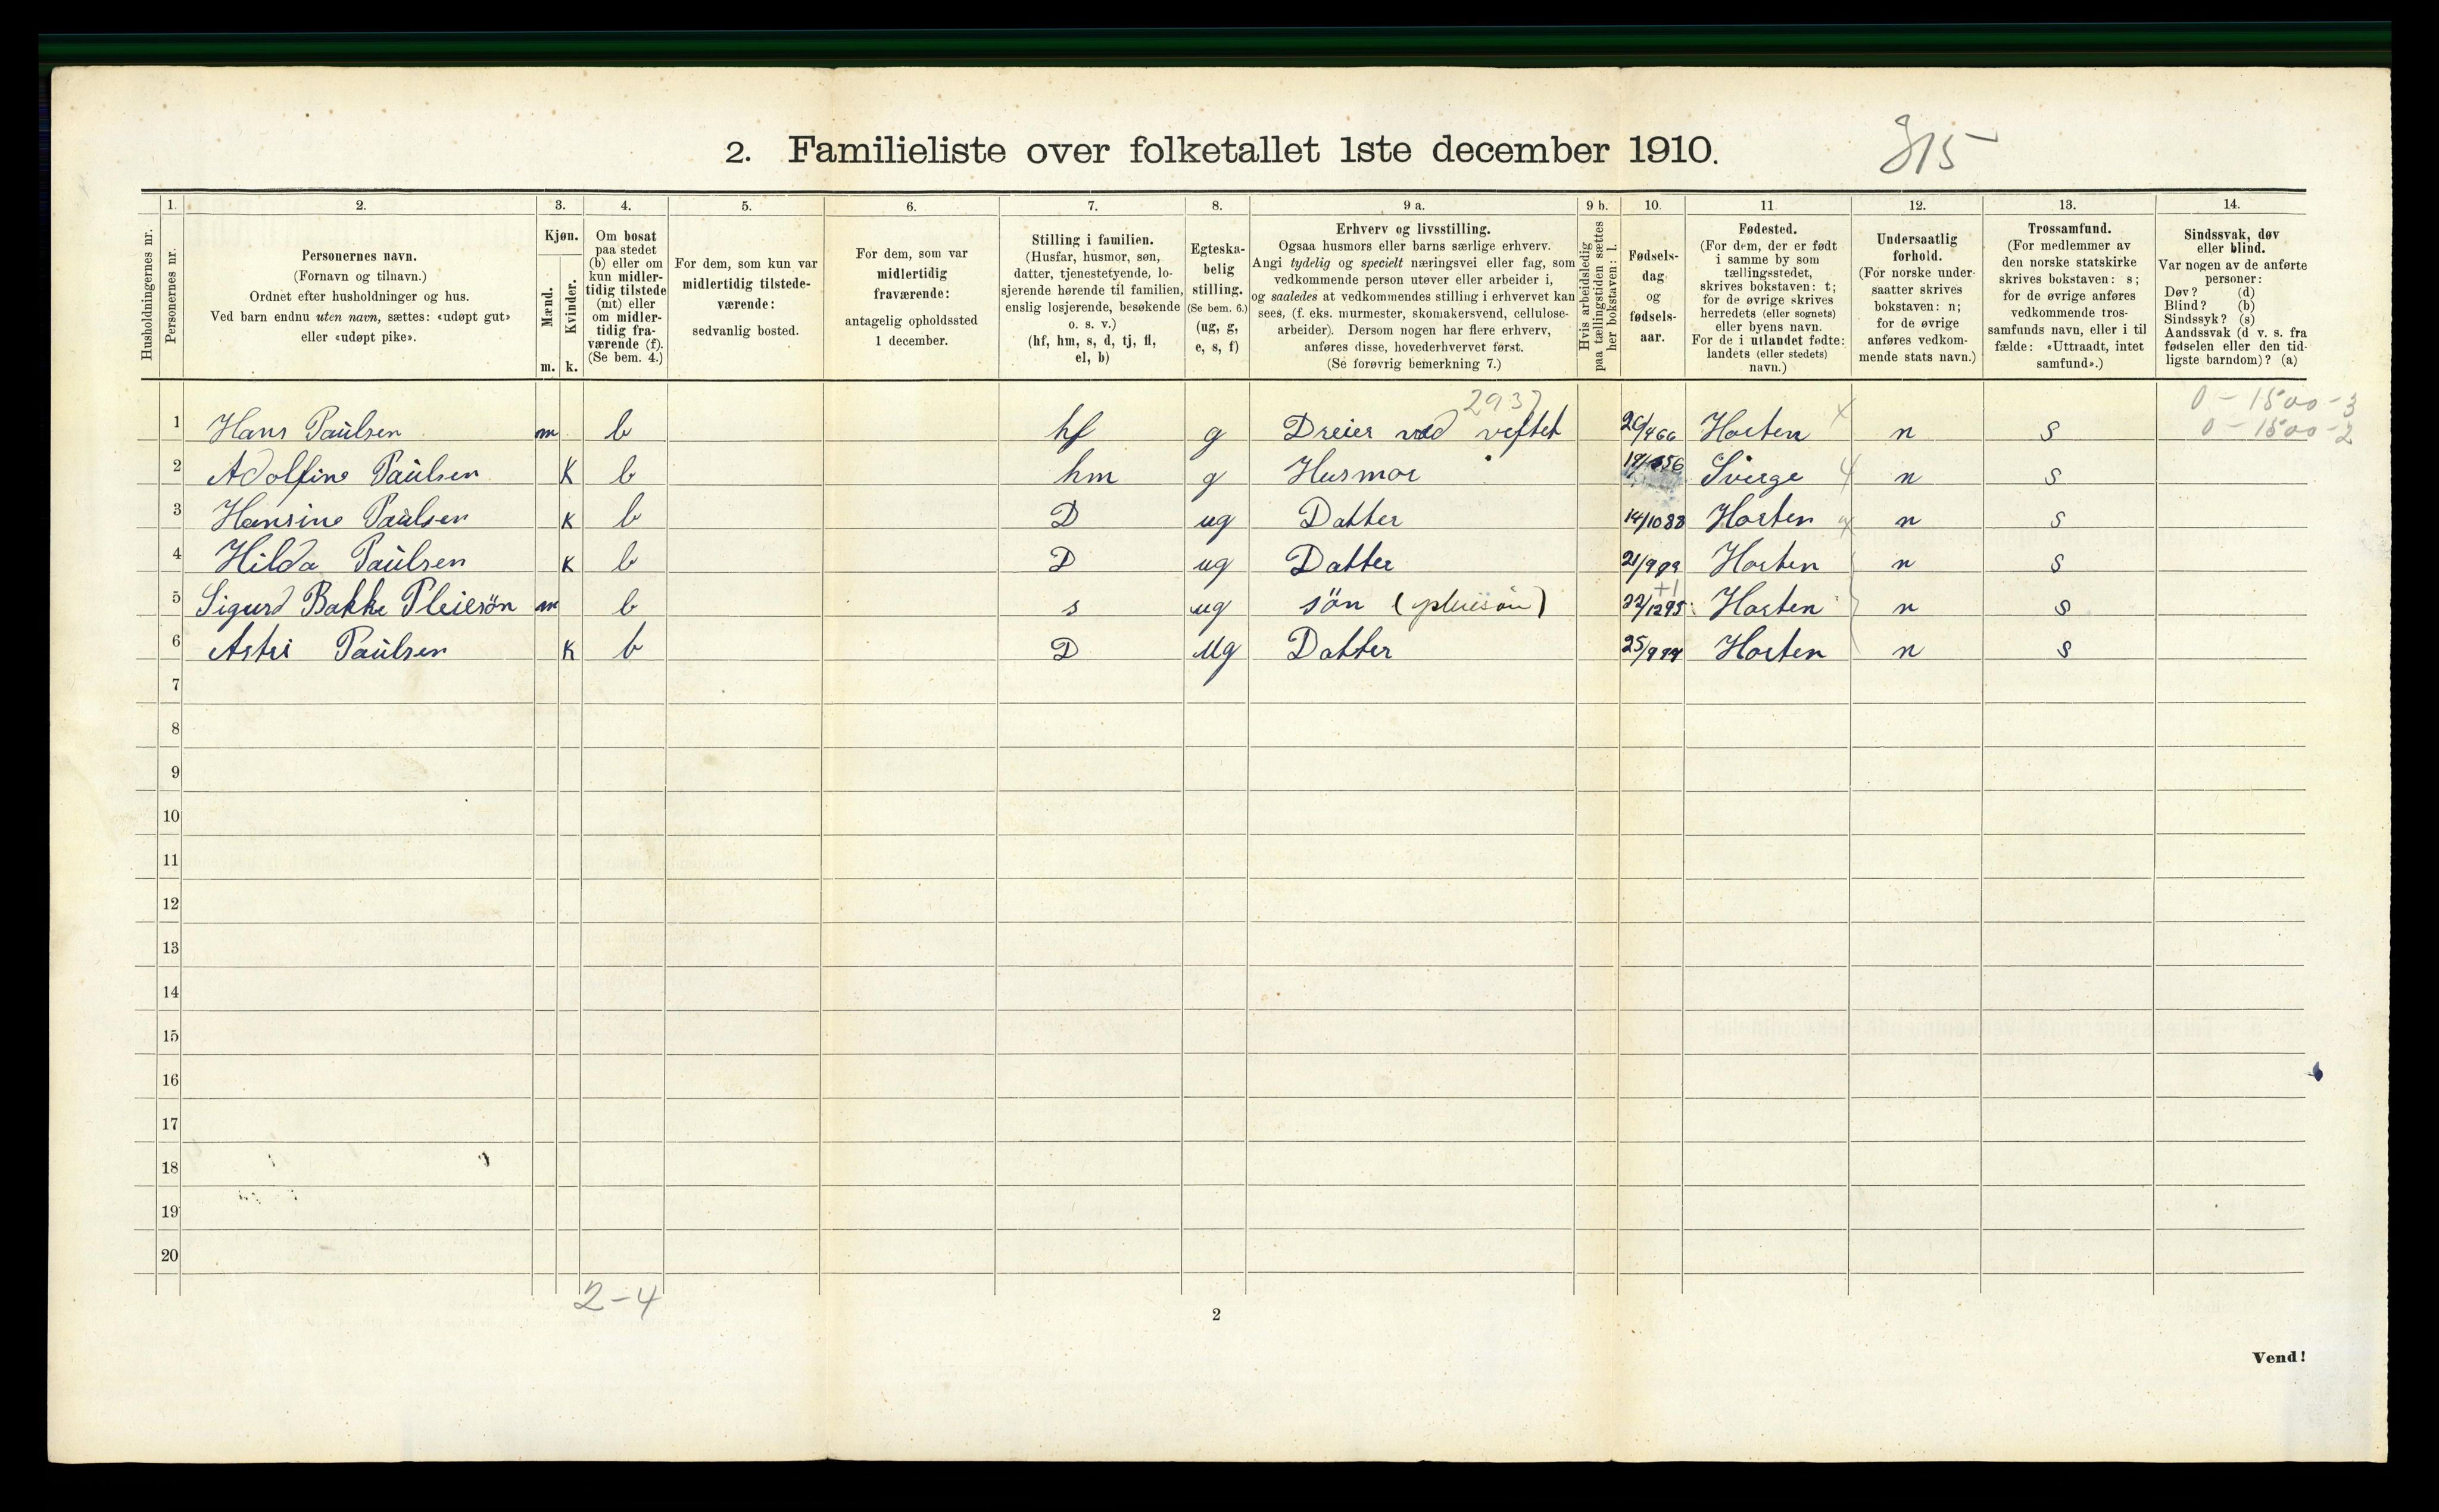 2. Familieliste over folketallet 1ste december 1910. 315
Husholdningernes nr.
1. Personernes nr.
2. Personernes navn.
(Fornavn og tilnavn.)
Ordnet efter husholdninger og hus.
Ved barn endnu uten navn, sættes: «udøpt gut»
eller «udøpt pike».
3. Kjøn.
Mænd. m.
Kvinder. k.
4. Om bosat
paa stedet
(b) eller om
kun midler-
tidig tilstede
(mt) eller
om midler-
tidig fra-
værende (f).
(Se bem. 4.)
5. For dem, som kun var
midlertidig tilstede-
værende:
sedvanlig bosted.
6. For dem, som var
midlertidig
fraværende:
antagelig opholdssted
1 december.
7. Stilling i familien.
(Husfar, husmor, søn,
datter, tjenestetyende, lo-
sjerende hørende til familien,
enslig losjerende, besøkende
o. s. v.)
(hf, hm, s, d, tj, fl,
el, b)
8. Egteska-
belig
stilling.
(Se bem. 6.)
(ug, g,
e, s, f)
9 a. Erhverv og livsstilling.
Ogsaa husmors eller barns særlige erhverv.
Angi tydelig og specielt næringsvei eller fag, som
vedkommende person utøver eller arbeider i,
og saaledes at vedkommendes stilling i erhvervet kan
sees, (f. eks. murmester, skomakersvend, cellulose-
arbeider). Dersom nogen har flere erhverv,
anføres disse, hovederhvervet først.
(Se forøvrig bemerkning 7.)
9 b. Hvis arbeidsledig
paa tællingstiden sættes
her bokstaven: l.
10. Fødsels-
dag
og
fødsels-
aar.
11 Fødested.
(For dem, der er født
i samme by som
tællingsstedet,
skrives bokstaven: t;
for de øvrige skrives
herredets (eller sognets)
eller byens navn.
For de i utlandet fødte:
landets (eller stedets)
navn.)
12. Undersaatlig
forhold.
(For norske under-
saatter skrives
bokstaven: n;
for de øvrige
anføres vedkom-
mende stats navn.)
13. Trossamfund.
(For medlemmer av
den norske statskirke
skrives bokstaven: s;
for de øvrige anføres
vedkommende tros-
samfunds navn, eller i til-
fælde: «Uttraadt, intet
samfund».)
14. Sindssvak, døv
eller blind.
Var nogen av de anførte
personer:
Døv? (d)
Blind? (b)
Sindssyk? (s)
Aandssvak (d v. s. fra
fødselen eller den tid-
ligste barndom)? (a)
2937 0 - 1500 - 3
1 Hans Paulsen m b hf g Dreier ved veftet 26/4 66 Horten x n s 0 - 1500 - 2
2 Adolfine Paulsen K b hm g Husmor Sverge n s
3 Hansine Paulsen K b D ug Datter 14/10 88 Horten n s
4 Hilda Paulsen K b D ug Datter 21/9 89 Horten n s
5 Sigurd Bakke Pleiesön m b s ug sön (pleiesön) +1 22/12 95 Horten n s
6 Astri Paulsen K b D ug Datter 25/9 99 Horten n s
7
8
9
10
11
12
13
14
15
16
17
18
19
20
2-4
2
Vend!